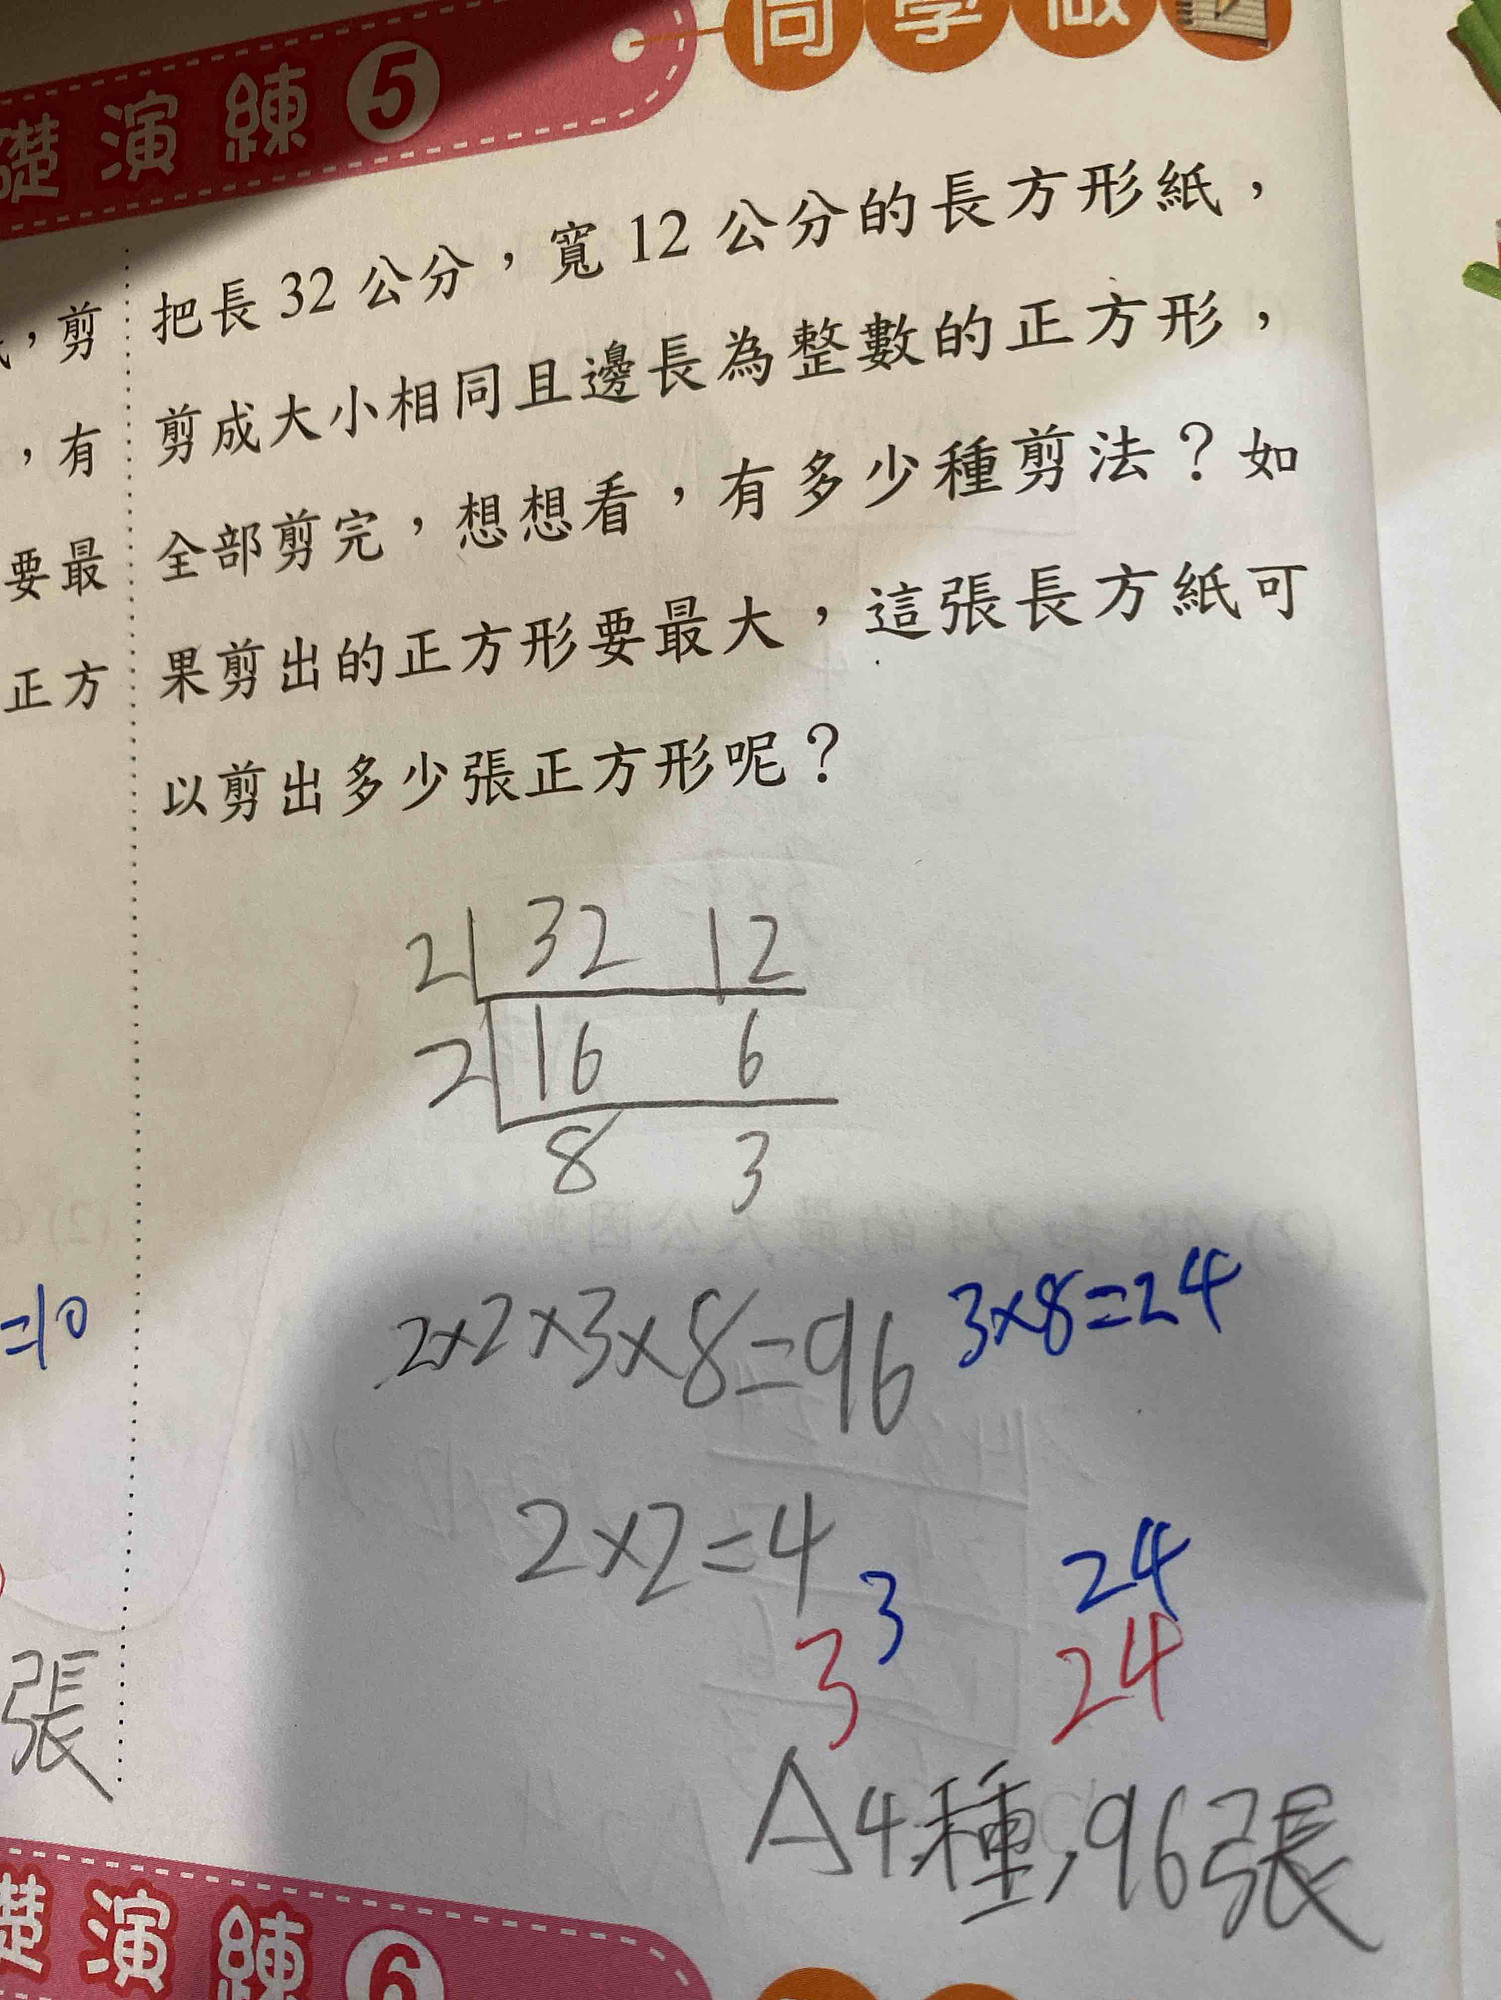 礎演練5
同學做
把長32公分，寬12公分的長方形紙，
剪成大小相同且邊長為整數的正方形，
全部剪完，想想看，有多少種剪法？如
果剪出的正方形要最大，這張長方紙可
以剪出多少張正方形呢？
，剪
，有
要最
正方
2 32 12
2 16 6
8 3
2×2×3×8=96 3×8=24
=10
2×2=4
3 24
3 24
張
A4種,96張
礎演練6